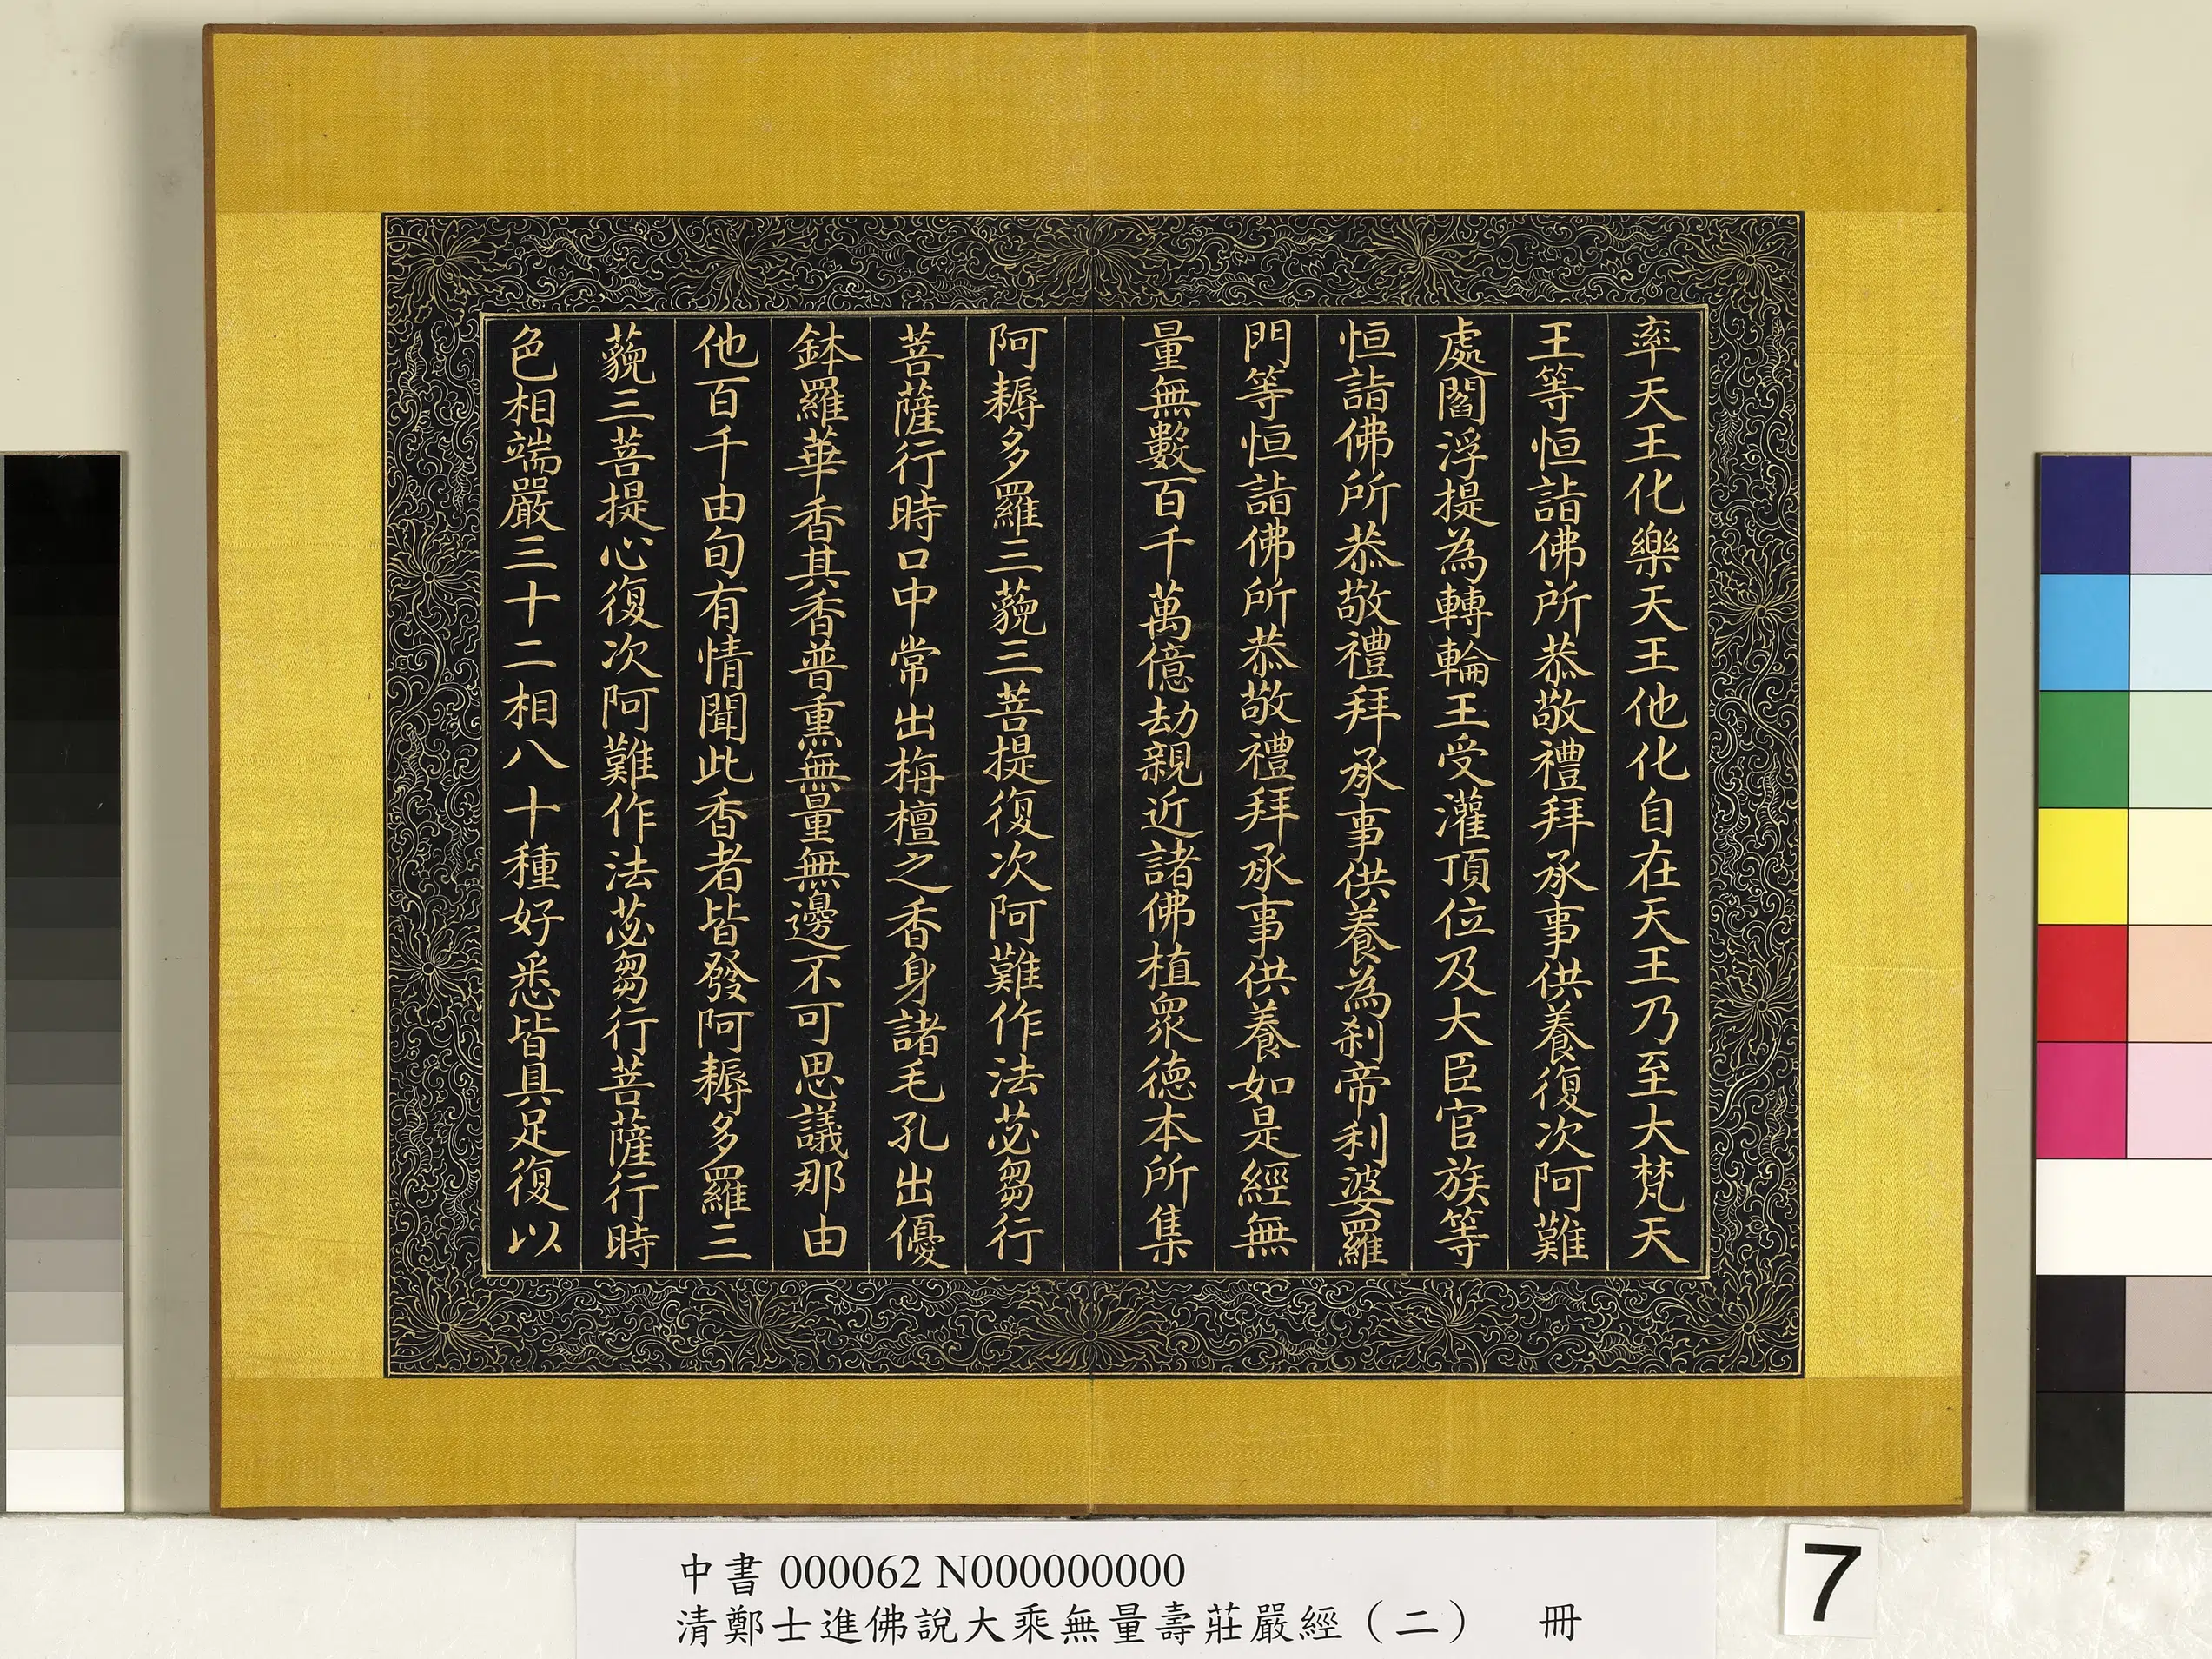 率天王化樂天王他化自在天王乃至大梵天
王等恒詣佛所恭敬禮拜承事供養復次阿難
處閻浮提為轉輪王受灌頂位及大臣官族等
恒詣佛所恭敬禮拜承事供養為剎帝利婆羅
門等恒詣佛所恭敬禮拜承事供養如是經無
量無數百千萬億劫親近諸佛植眾德本所集
阿耨多羅三藐三菩提復次阿難作法苾芻行
菩薩行時口中常出栴檀之香身諸毛孔出優
鉢羅華香其香普熏無量無邊不可思議那由
他百千由旬有情聞此香者皆發阿耨多羅三
藐三菩提心復次阿難作法苾芻行菩薩行時
色相端嚴三十二相八十種好悉皆具足復以
中書 000062 N000000000
清鄭士進佛說大乘無量壽莊嚴經（二） 冊
7